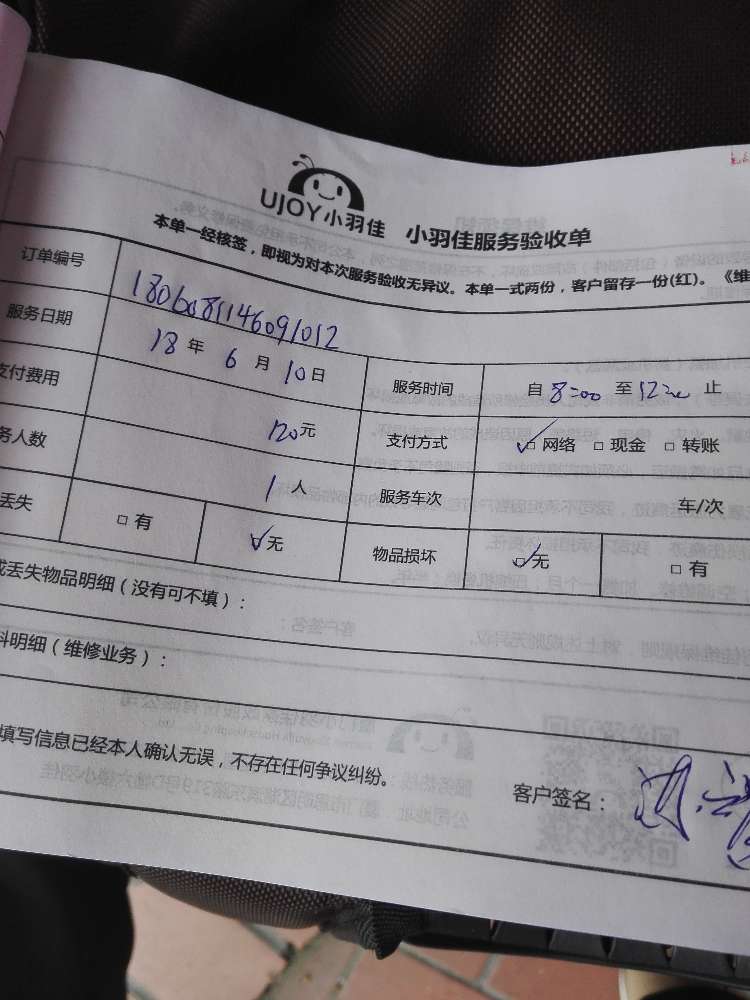 UJOY小羽佳 小羽佳服务验收单
本单一经核签，即视为对本次服务验收无异议。本单一式两份，客户留存一份(红)。《维
订单编号 1806081146091012
服务日期 18 年 6 月 10 日 服务时间 自 8:00 至 12:00 止
支付费用 120元 支付方式 ☑网络 □现金 □转账
务人数 1人 服务车次 车/次
丢失 □有 ☑无 物品损坏 ☑无 □有
或丢失物品明细（没有可不填）：
料明细（维修业务）：
填写信息已经本人确认无误，不存在任何争议纠纷。
客户签名：